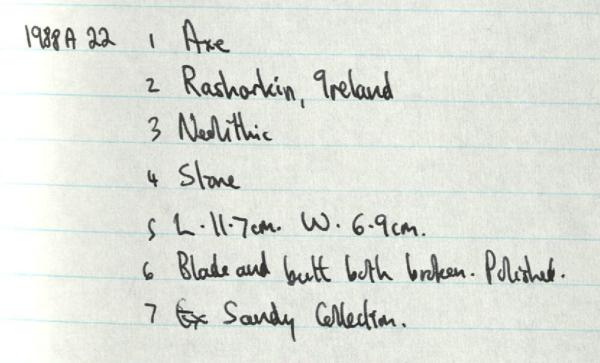 1988 A 22 1 Axe
2 Rasharkin, Ireland
3 Neolithic
4 Stone
5 L. 11.7cm. W. 6.9cm.
6 Blade and butt both broken. Polished.
7 Ex Sandy Collection.